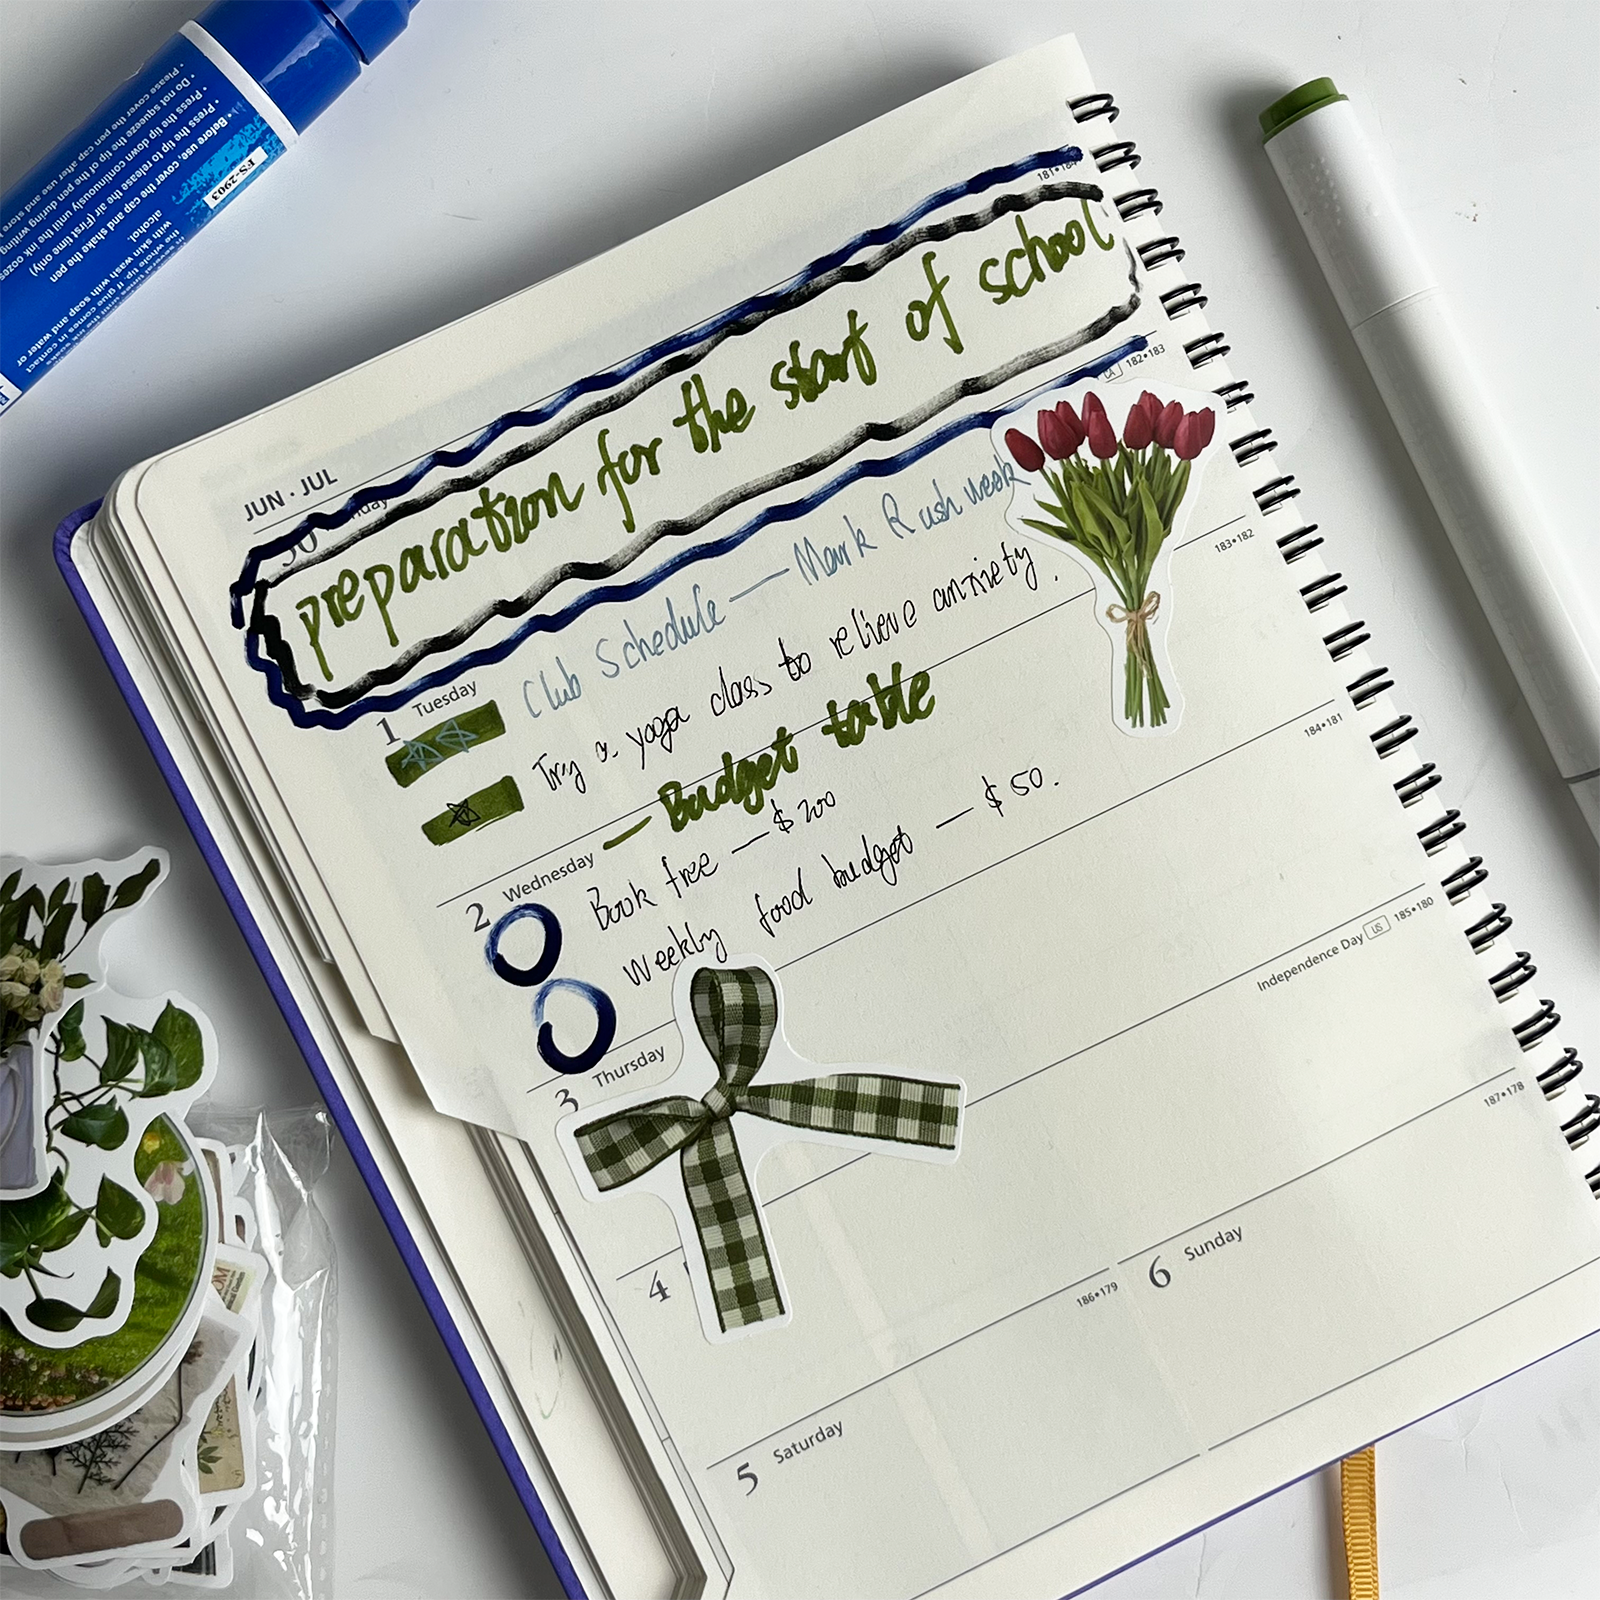 • Before use, cover the cap and shake the pen
• Press the tip to release the air (First time only)
• Press the tip down continuously until the ink oozes
• Do not squeeze the tip of the pen during writing
• Please cover the pen cap after use and store
FS-2903
alcohol.
with skin wash with soap and water or
if glue comes in contact
JUN · JUL
30
181•184
preparation for the start of school
1 Tuesday
CA 182•183
Club Schedule — Mark Rush week
Try a yoga class to relieve anxiety.
183•182
— Budget table
2 Wednesday
Book free — $200
Weekly food budget — $50.
184•181
3 Thursday
Independence Day US 185•180
4
187•178
186•179
6 Sunday
5 Saturday